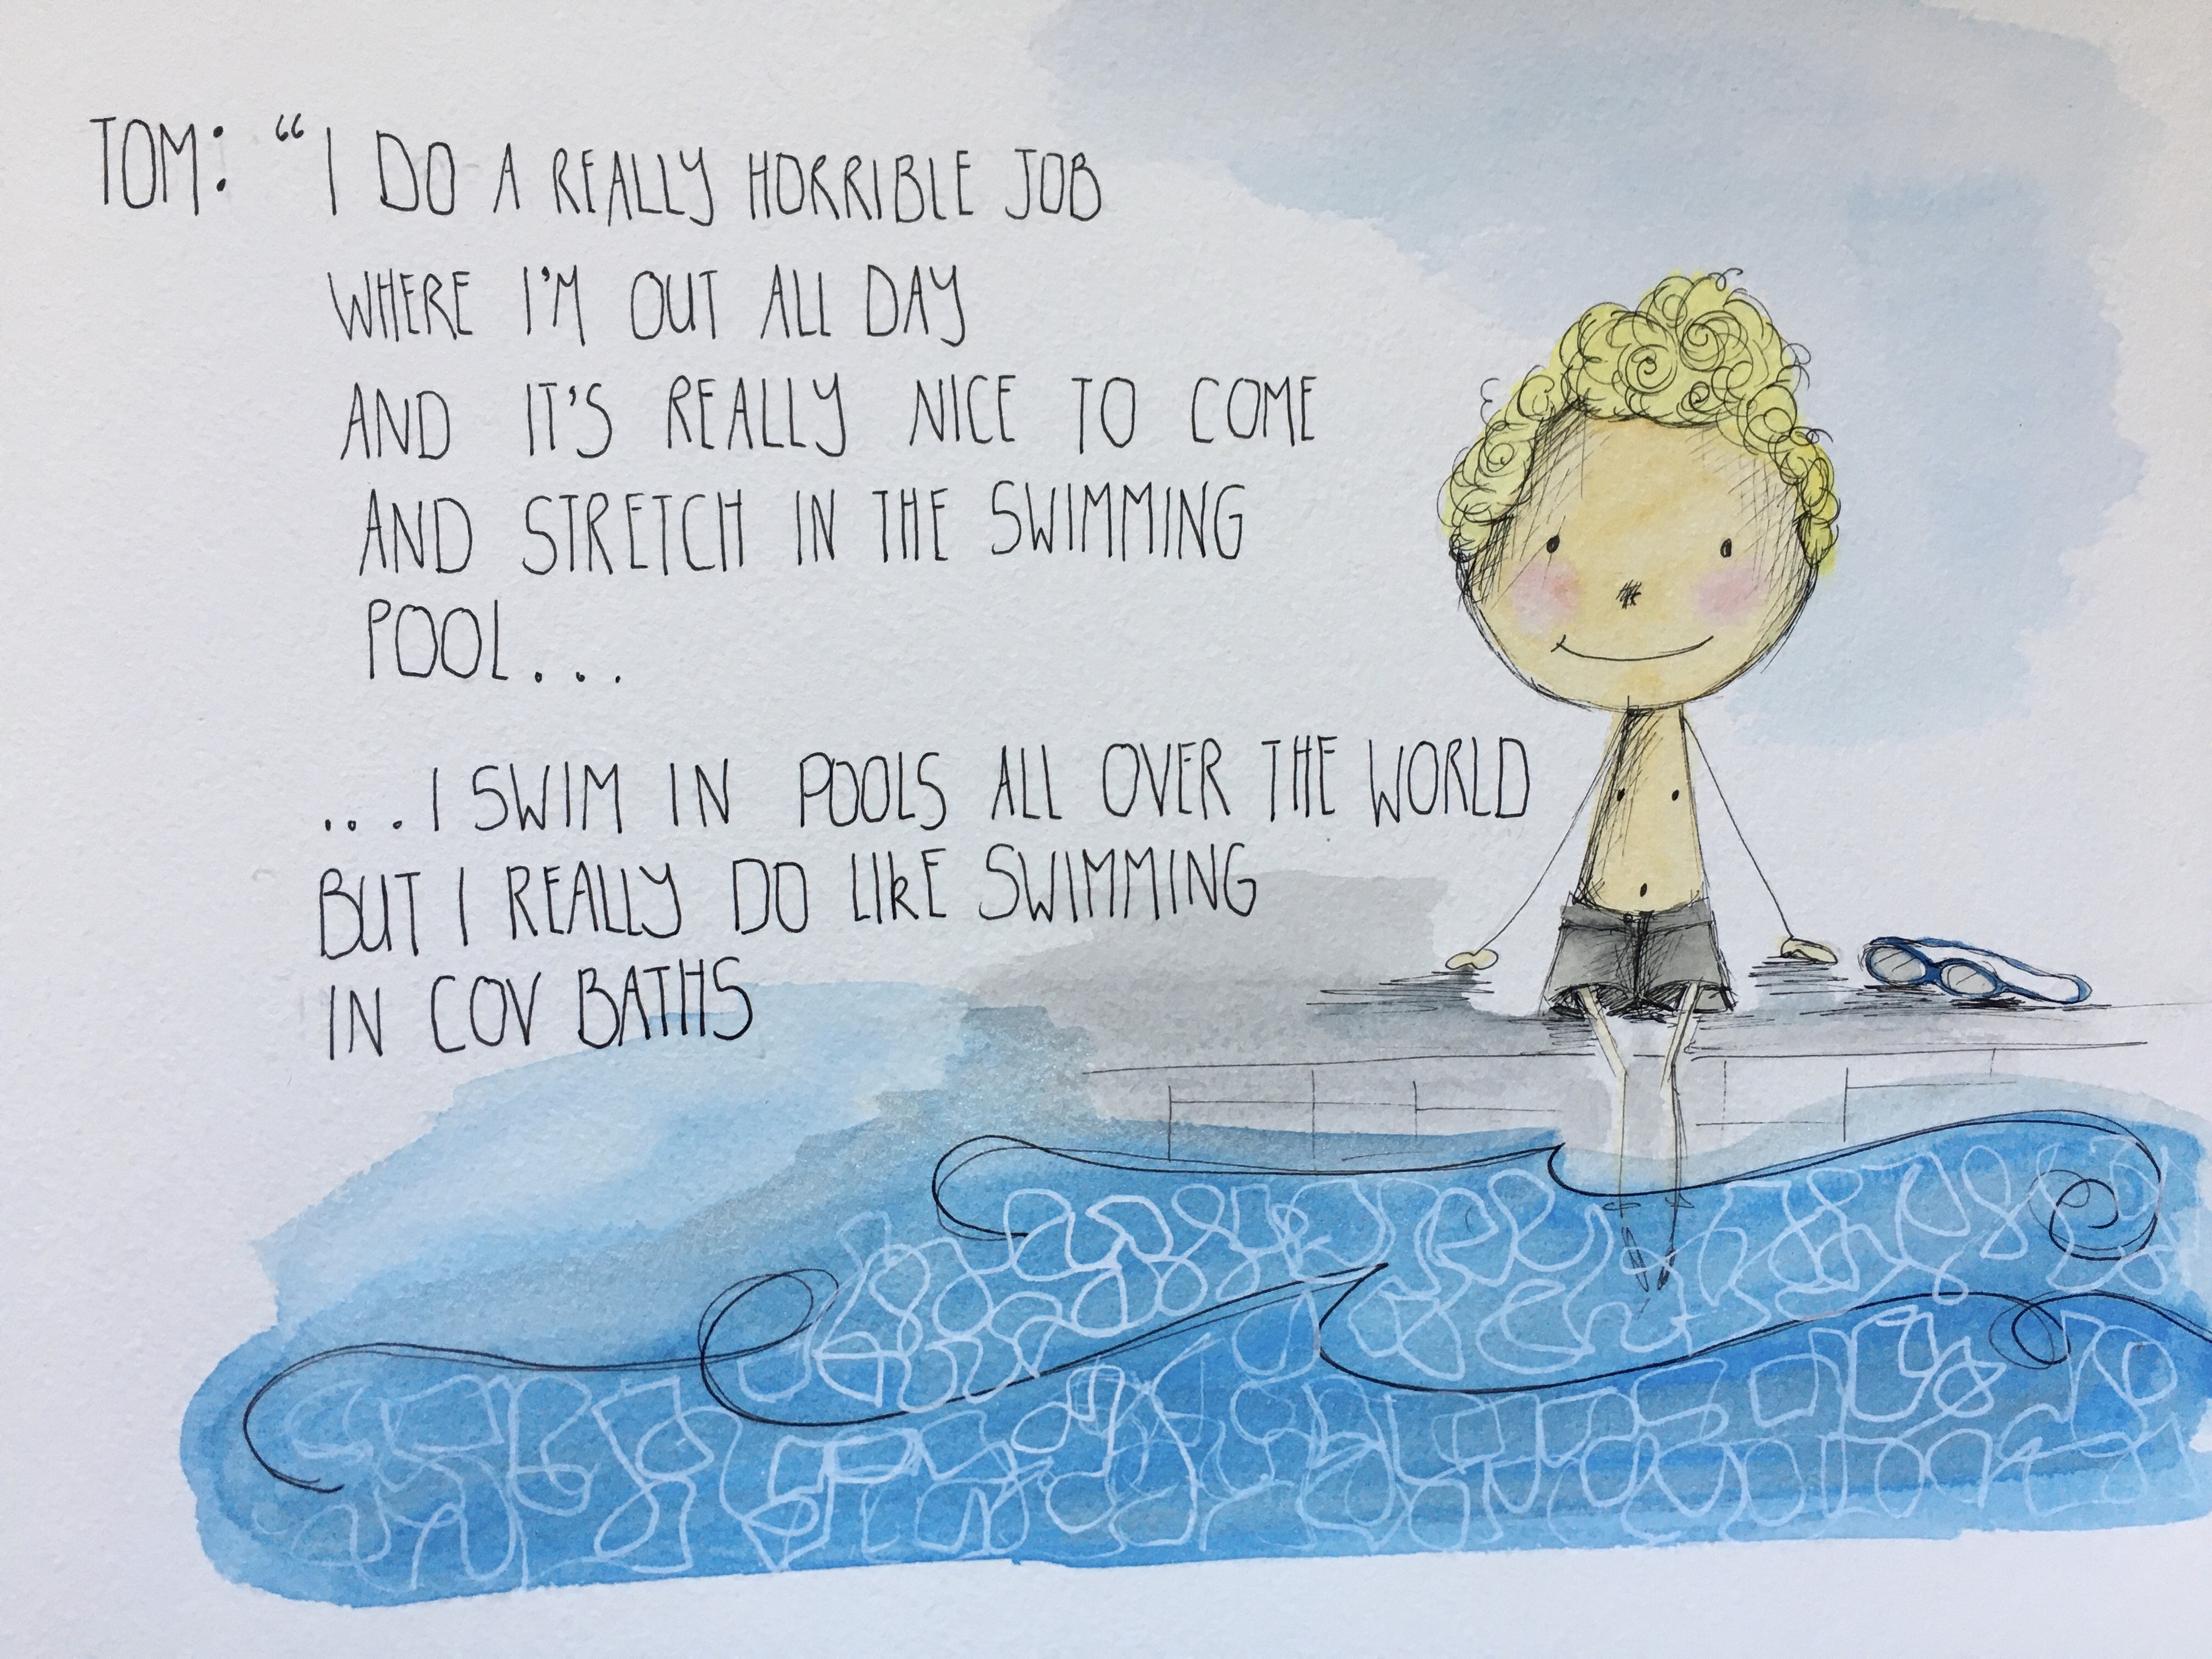 TOM: “I DO A REALLY HORRIBLE JOB
WHERE I'M OUT ALL DAY
AND IT'S REALLY NICE TO COME
AND STRETCH IN THE SWIMMING
POOL...
...I SWIM IN POOLS ALL OVER THE WORLD
BUT I REALLY DO LIKE SWIMMING
IN COV BATHS